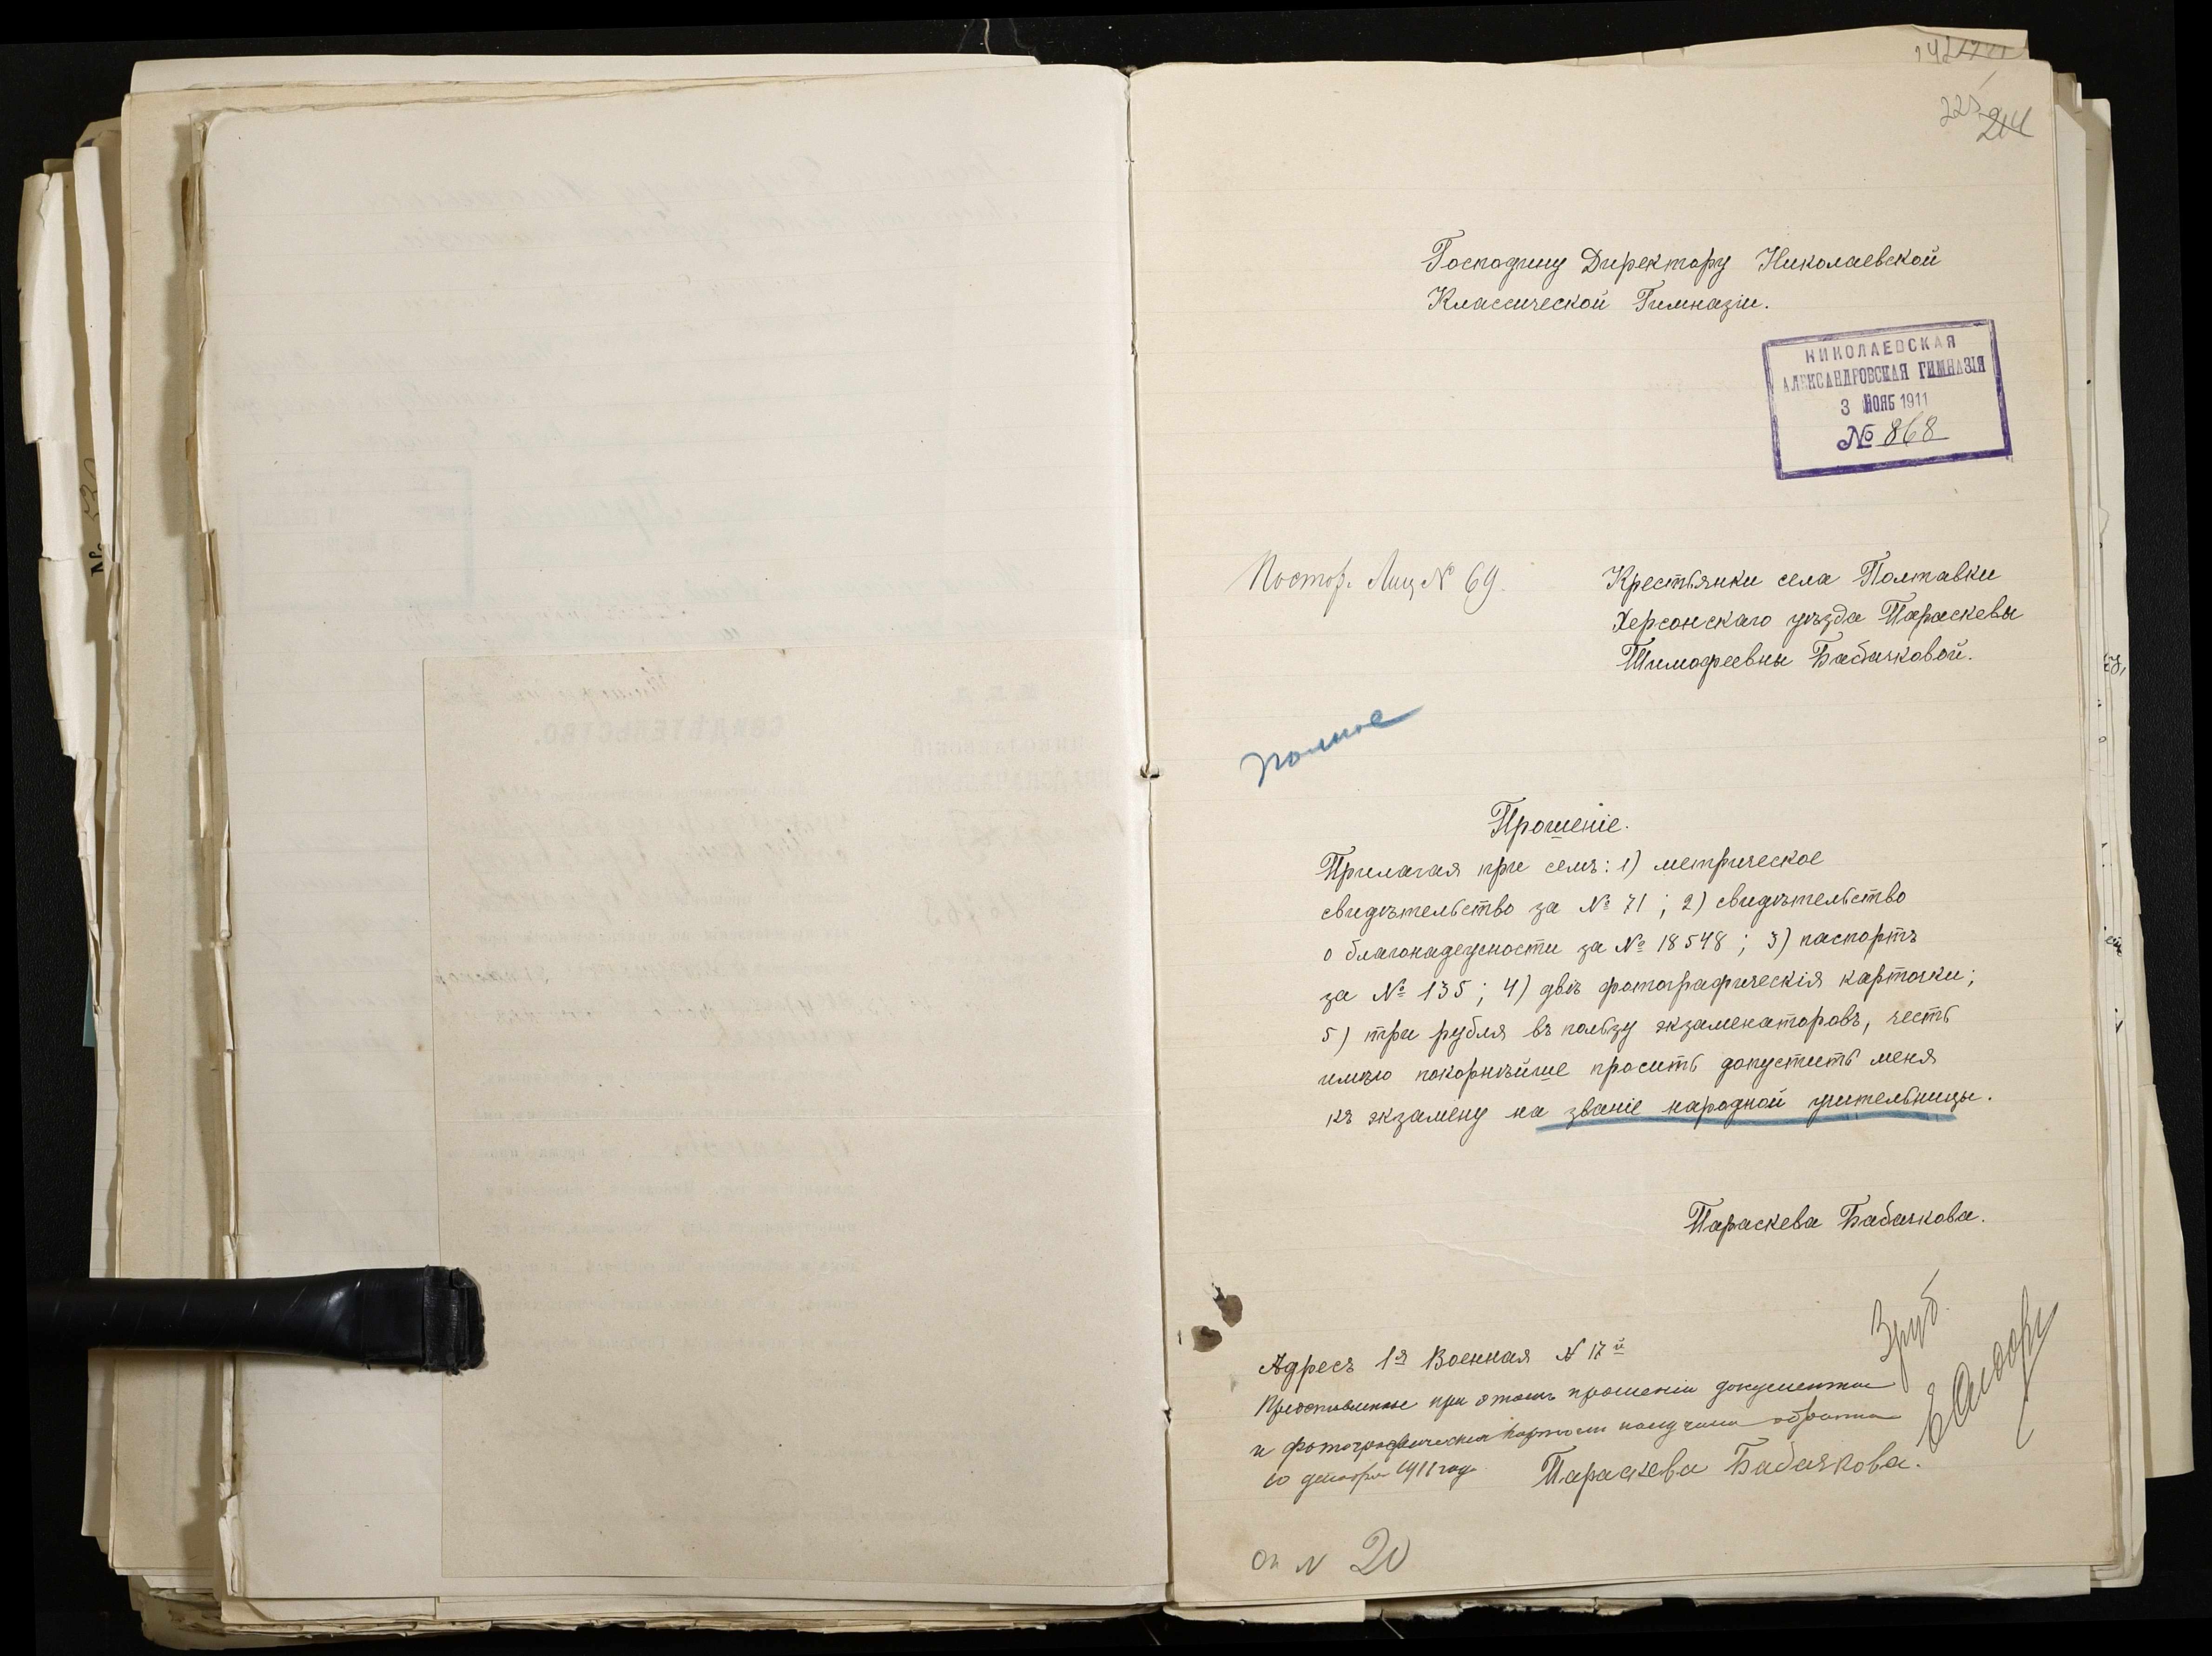 223 214
Господину Директору Николаевской
Классической Гимназіи.
НИКОЛАЕВСКАЯ
АЛЕКСАНДРОВСКАЯ ГИМНАЗІЯ
3 НОЯБ 1911
№ 868
Постор. Лиц № 69.
Крестьянки села Полтавки
Херсонскаго уѣзда Параскевы
Тимофеевны Бабачковой.
полное
Прошеніе.
Прилагая при семъ: 1) метрическое
свидѣтельство за № 71; 2) свидѣтельство
о благонадежности за № 18548; 3) паспортъ
за № 135; 4) двѣ фотографическія карточки;
5) три рубля въ пользу экзаменаторовъ, честь
имѣю покорнѣйше просить допустить меня
къ экзамену на званіе народной учительницы.
Параскева Бабачкова.
3 руб.
Адресъ 1я Военная № 17й
Представленные при этомъ прошеніи документы
и фотографическія карточки получила обратно
10 декабря 1911 года
Параскева Бабачкова.
Оп № 20
СВИДѢТЕЛЬСТВО.